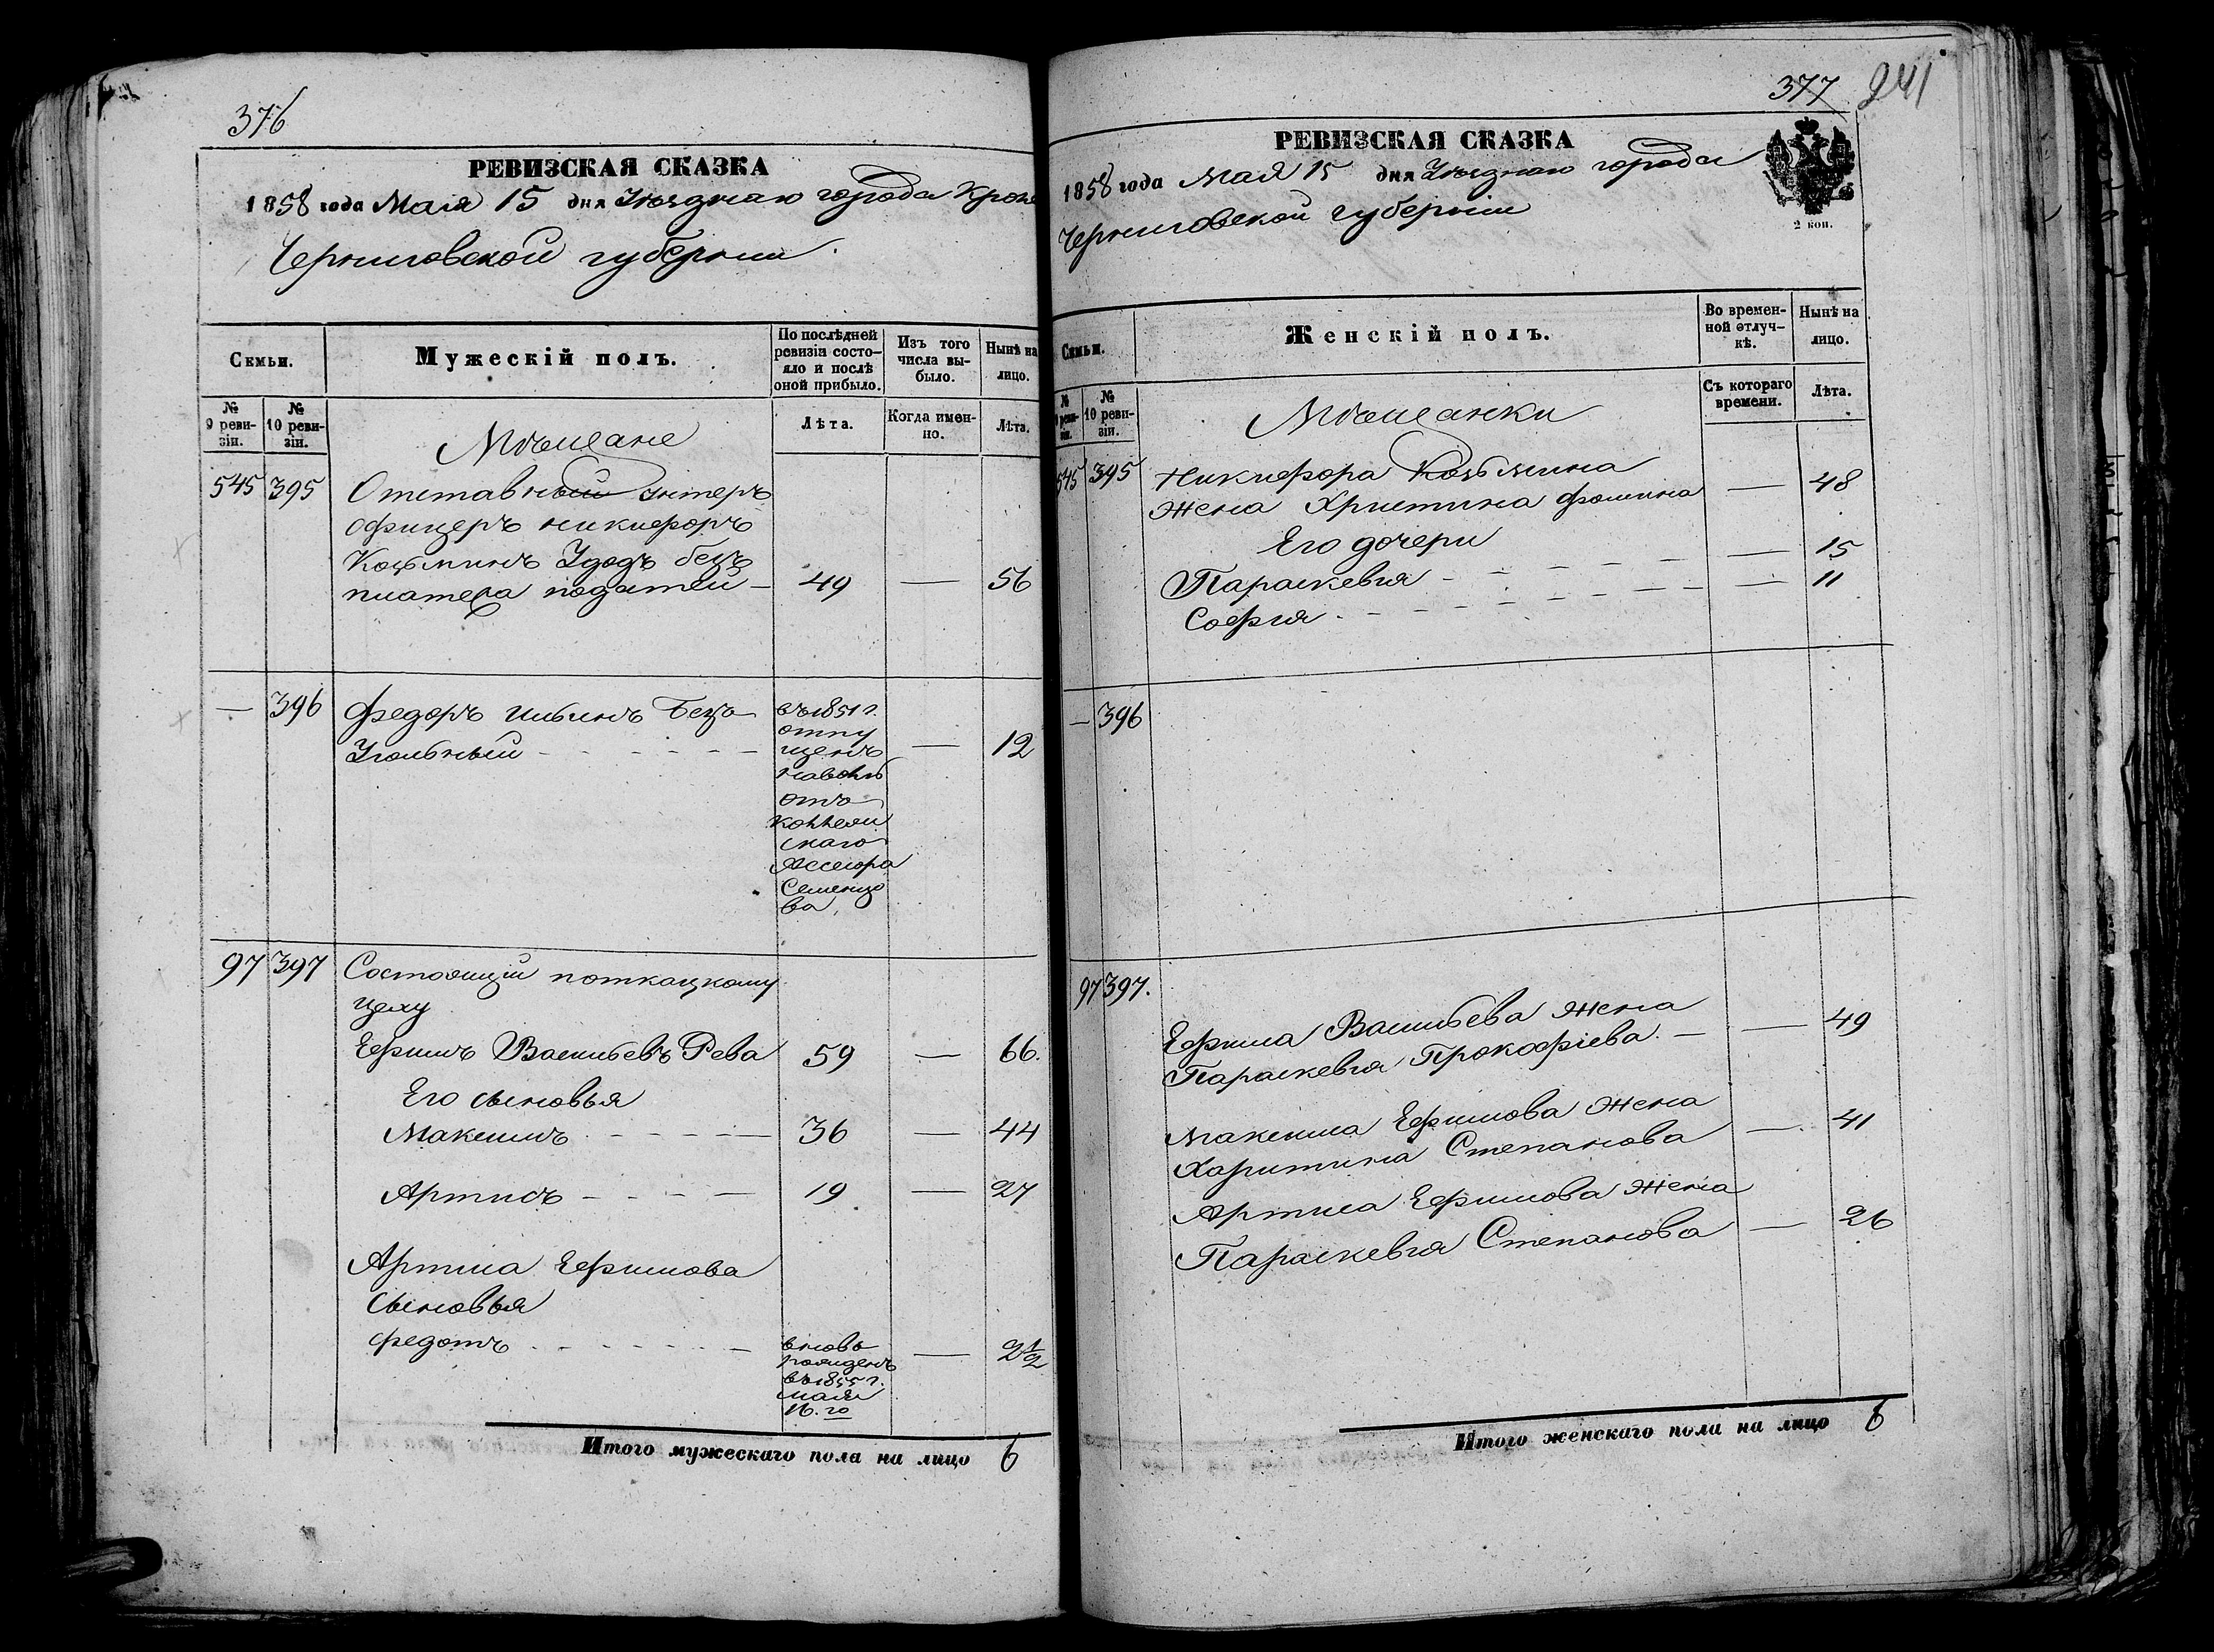 376
РЕВИЗСКАЯ СКАЗКА
1858 года Мая 15 дня Уѣзднаго города
Черниговской губернии
Скмьи.
Мужескій полъ.
По послѣдней ревизіи состо-
яло и послѣ
оной прибыло.
Изъ того
числа вы-
было.
Нынѣ на
лицо.
№
9 реви-
зіи.
№
10 реви-
зіи.
Лѣта.
Когда имен-
но.
Лѣта.
Мѣщане
545 395 Отставный унтеръ
офицеръ никифоръ
Козьминъ Удодъ безъ
платежа податей — 49 — 56
— 396 Федоръ Ильинъ Безъ
Угольный — 12
въ 1851 г.
отпу
щенъ
наволю
отъ
коллеж
скаго
Ассесора
Семенцо
ва.
97 397 Состоящий поткацкому
цеху
Ефимъ Васильевъ Рева 59 — 66.
Его сыновья
Максимъ 36 — 44
Артимъ 19 — 27
Артима Ефимова
Сыновья
федотъ — 2½
вновь
рожденъ
въ 1855 г.
мая
16.го
Итого мужескаго пола на лицо 6
377 241
РЕВИЗСКАЯ СКАЗКА
1858 года Мая 15 дня Уѣзднаго города
Черниговской губерніи
2 коп.
Скмьи.
Женскій полъ.
Во времен-
ной отлуч-
кѣ.
Нынѣ на
лицо.
№
9 реви-
зіи.
№
10 реви-
зіи.
Съ котораго
времени.
Лѣта.
Мѣщанки
545 395 Никифора Козьмина
жена Христина фомина — 48
Его дочери
Параскевия — 15
София — 11
— 396
97 397.
Ефима Васильева жена
Параскевия Прокофіева. — 49
Максима Ефимова жена
Харитина Степанова — 41
Артима Ефимова жена
Параскевия Степанова — 26
Итого женскаго пола на лицо 6